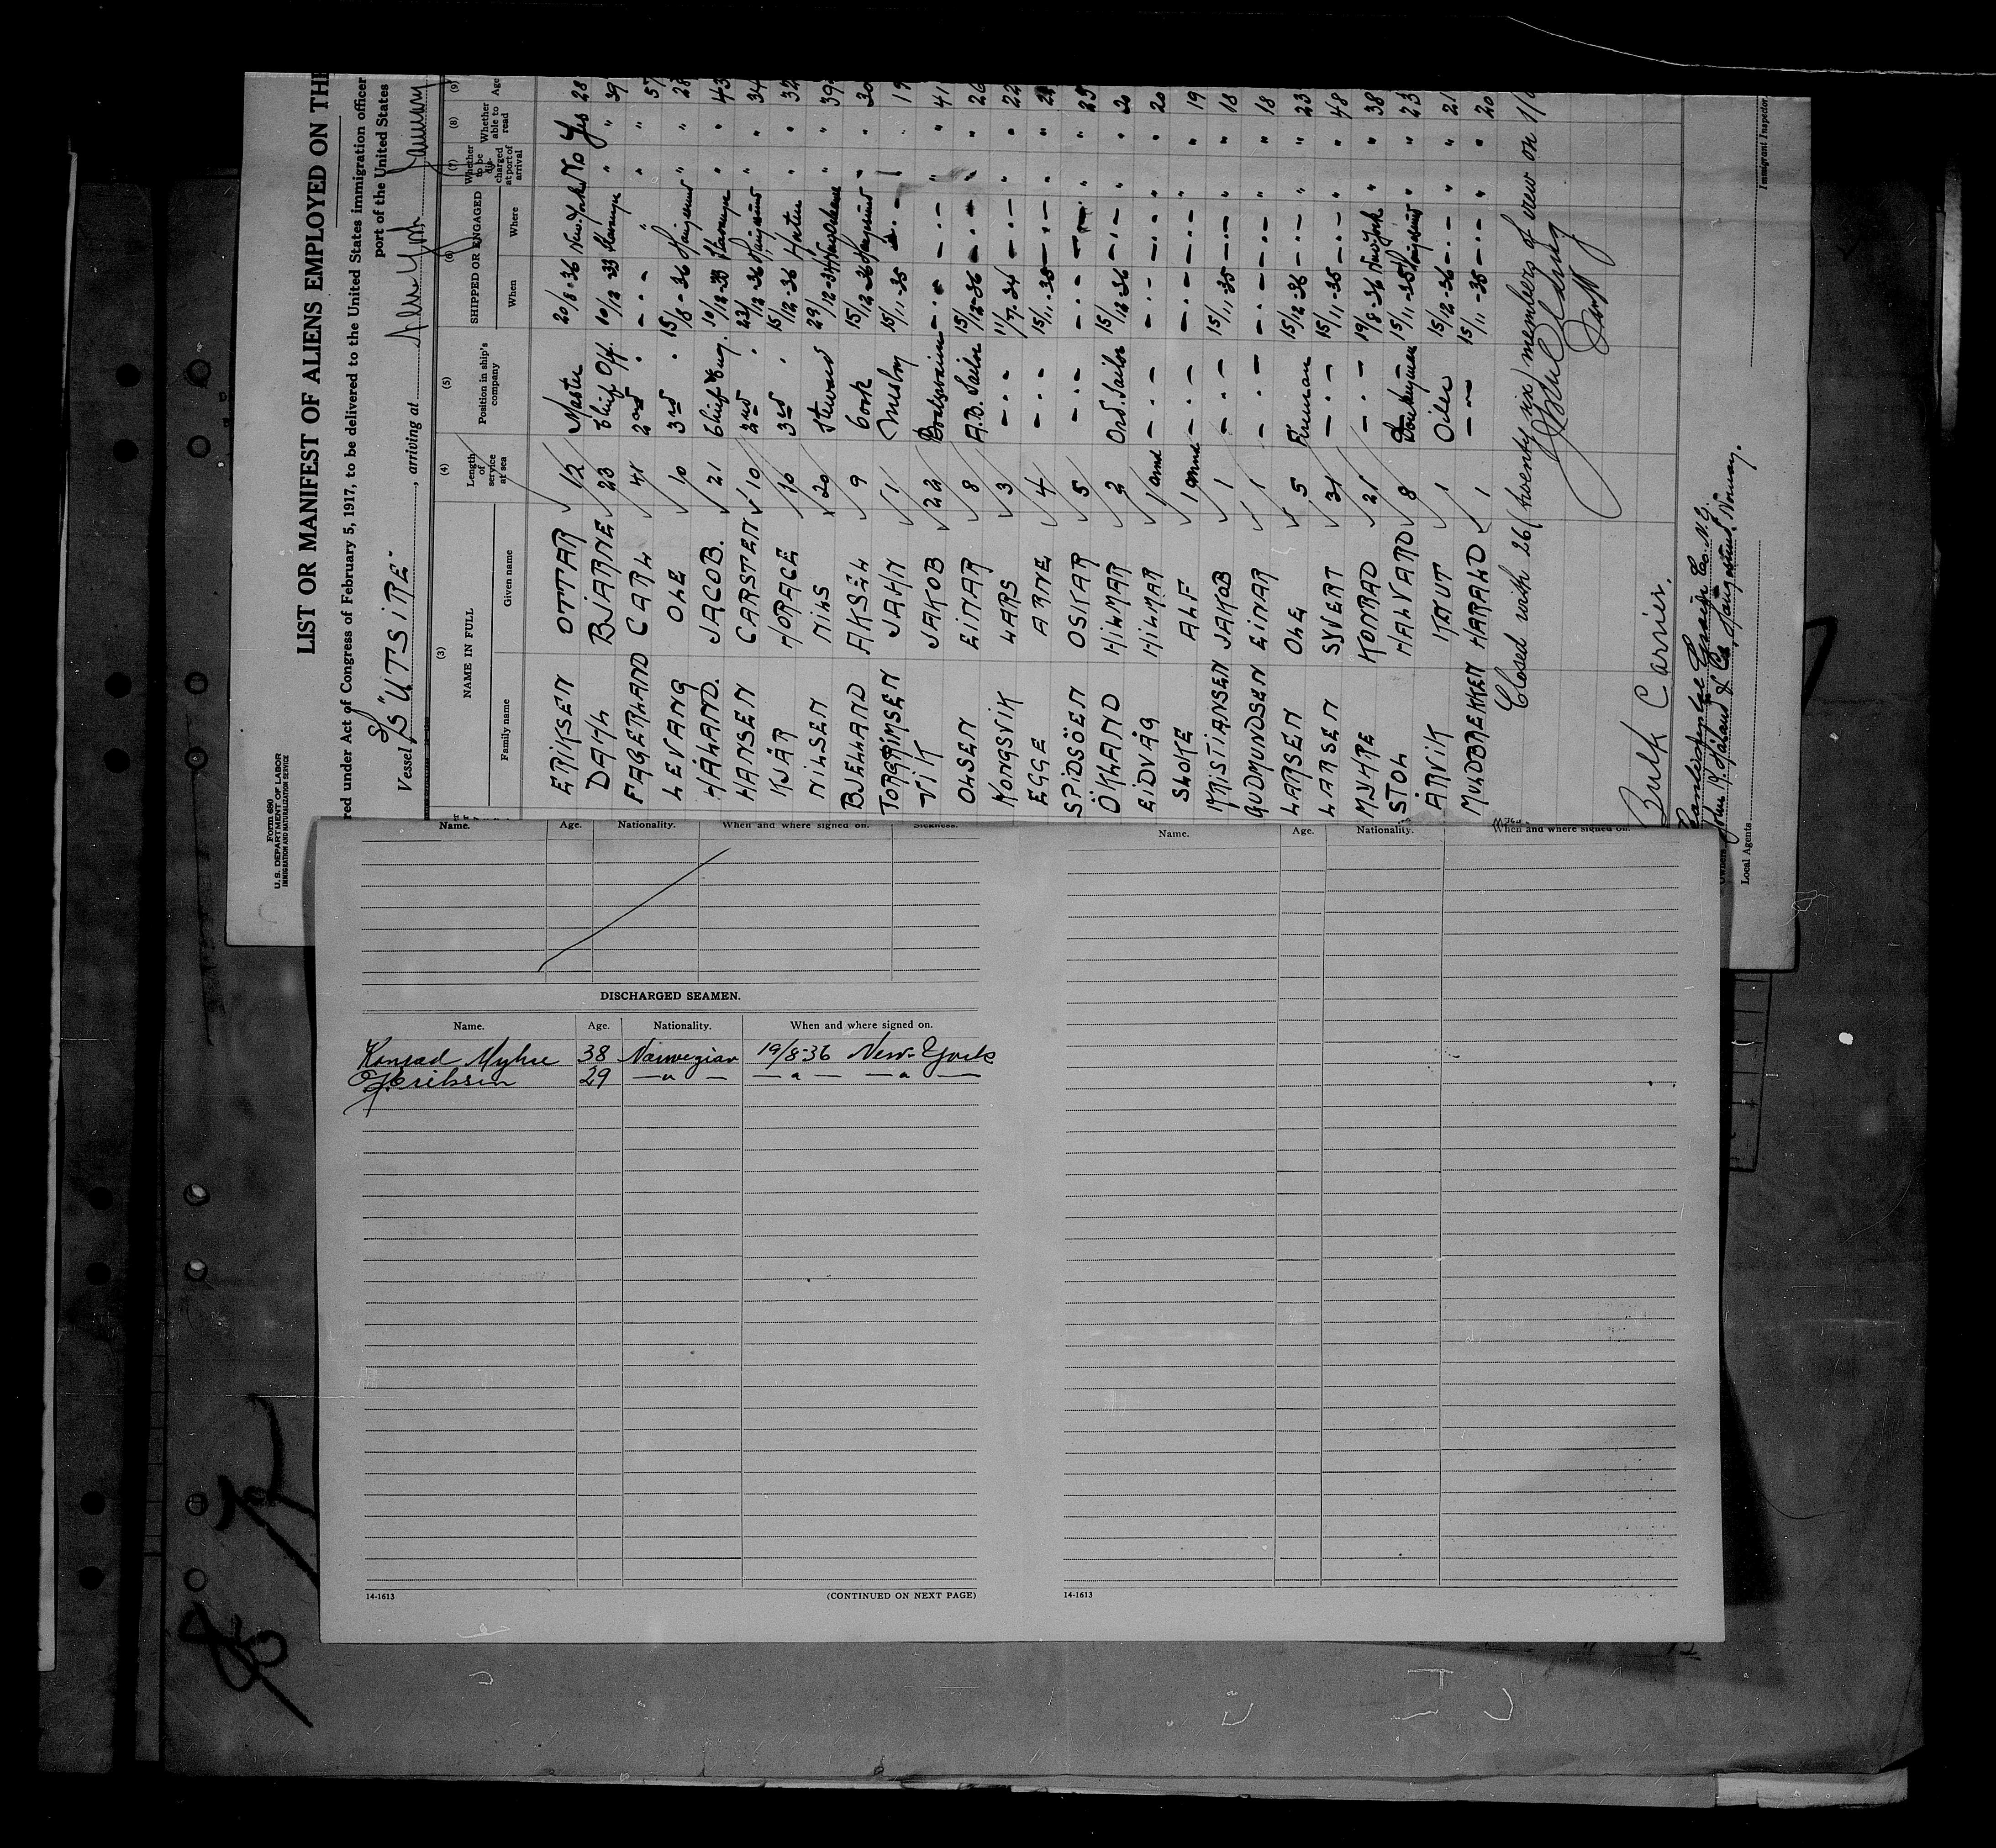 Form 680
U.S. DEPARTMENT OF LABOR
IMMIGRATION AND NATURALIZATION SERVICE
LIST OR MANIFEST OF ALIENS EMPLOYED ON THE
red under Act of Congress of February 5, 1917, to be delivered to the United States immigration officer
port of the United States
Vessel "UTSIRE" , arriving at New York January
(3) (4) (5) (6) (7) (8) (9)
NAME IN FULL Length of service at sea Position in ship's company SHIPPED OR ENGAGED Whether to be discharged at port of arrival Whether able to read Age
Family name Given name When Where
ERIKSEN OTTAR 12 Master 20/8-36 New-York No Yes 28
DAHL BJARNE 23 Chief Off. 10/12-33 " " 39
FAGERLAND CARL 41 2nd " - . - " " " 57
LEVANG OLE 10 3rd " 15/8-36 Haugesund " " 28
HÅLAND. JACOB. 21 Chief Eng. 10/12-33 " " 43
HANSEN CARSTEN 10 2nd " 22/12-36 Haugesund " " 34
KJÄR HORACE 10 3rd " 15/12-36 " " 32
NILSEN NILS 20 Steward 29/12-34 " " 39
BJELLAND AKSEL 9 Cook 15/12-36 Haugesund " " 30
TORGRIMSEN JAHN 1 Messboy 15/11-35 - . - " " 19
VIK JAKOB 22 Boatswain - . - - . - " " 41
OLSEN EINAR 8 A.B. Sailor 15/12-36 - . - " " 26
KONGSVIK LARS 3 - . - 11/7-34 - . - " " 22
EGGE ARNE 4 - . - 15/11-35 - . - " "
SPIDSÖEN OSKAR 5 - . - - . - - . - " " 25
ÖKLAND HILMAR 2 Ord. Sailor 15/12-36 - . - " " 20
EIDVÅG HILMAR 1 and - . - - . - - . - " " 20
SLOKE ALF 1 and - . - - . - - . - " " 19
KRISTIANSEN JAKOB 1 - . - 15/11-35 - . - " " 18
GUDMUNDSEN EINAR 1 - . - - . - - . - " " 18
LARSEN OLE 5 Fireman 15/12-36 - . - " " 23
LARSEN SYVERT 31 - . - 15/11-35 - . - " " 48
MYHRE KONRAD 21 - . - 19/8-36 New-York " " 38
STOL HALVARD 8 Donkeyman 15/11-35 Haugesund " " 23
ÅRVIK KNUT 1 Oiler 15/12-36 - . - " " 21
MULDBREKKEN HARALD 1 - . - 15/11-35 - . - " " 20
Closed with 26 (twenty six) members of crew on
Bulk Carrier.
Owners
John K. Håland & Co. Haugesund. Norway.
Local Agents
Immigrant Inspector.
Name. Age. Nationality. When and where signed on. Sickness.
DISCHARGED SEAMEN.
Name. Age. Nationality. When and where signed on.
Konrad Myhre 38 Norwegian 19/8-36 New-York
Eriksen 29 — " — — " — — " —
14-1613 (CONTINUED ON NEXT PAGE)
Name. Age. Nationality. When and where signed on.
14-1613